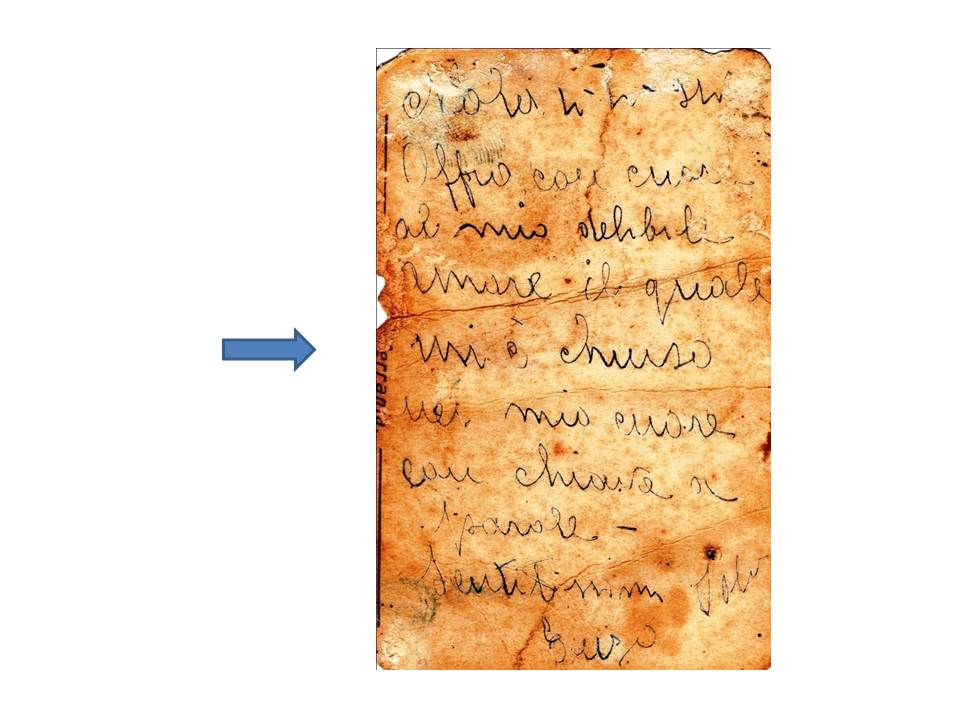 Offro con cuore
al mio dehbole
amore il quale
mi è chiuso
nel mio cuore
con chiave a
parole -
Sentitimm
Enzo